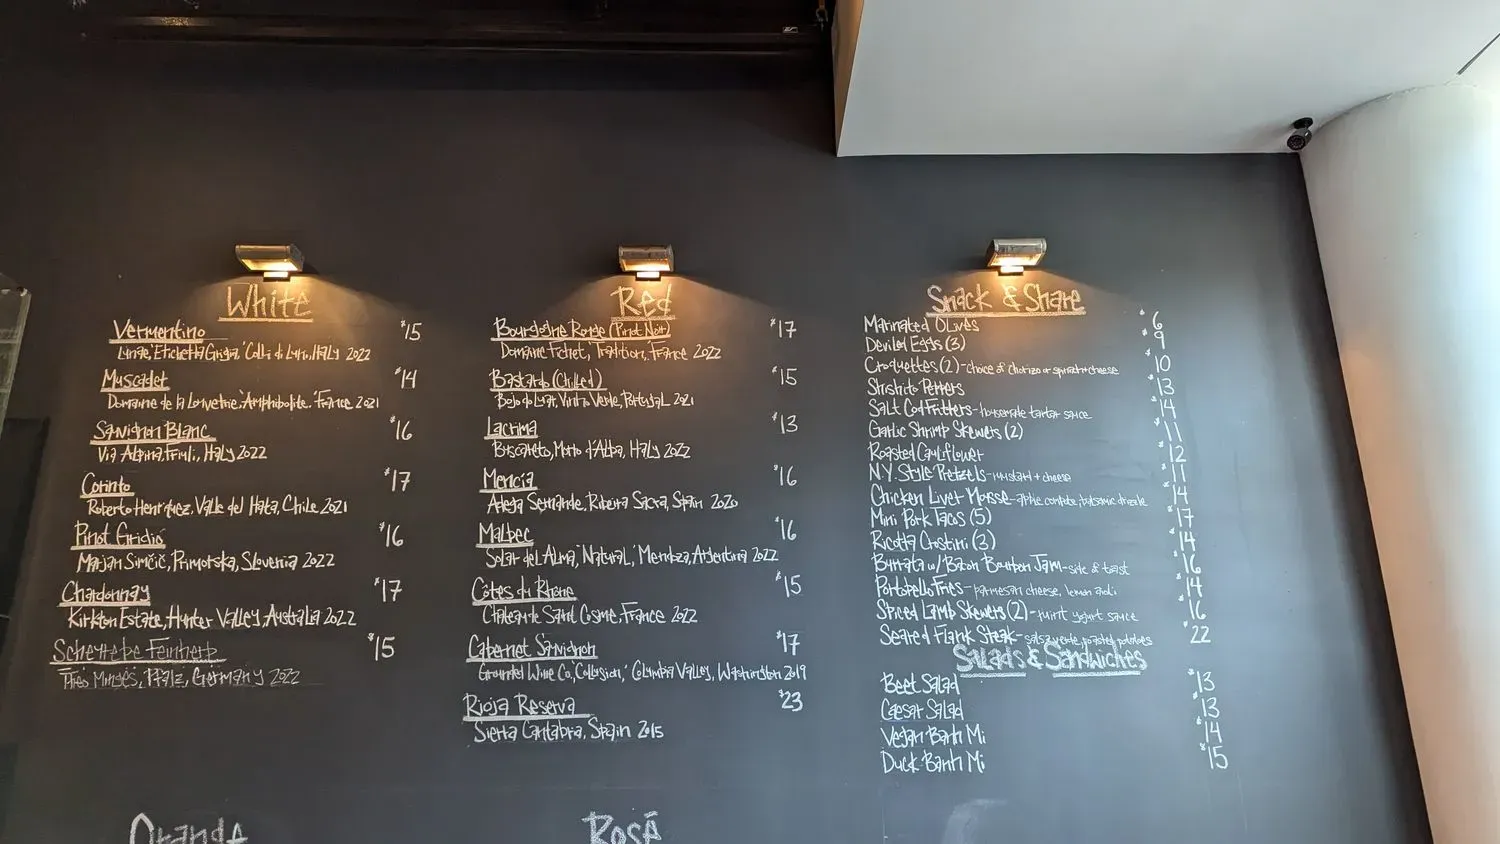 White
Vermentino $15
Lunae, 'Etichetta Grigia,' Colli di Luni, Italy 2022
Muscadet $14
Domaine de la Louvetrie, 'Amphibolite,' France 2021
Sauvignon Blanc $16
Via Alpina, Friuli, Italy 2022
Corinto $17
Roberto Henriquez, Valle del Itata, Chile 2021
Pinot Gridio $16
Marjan Simčič, Primorska, Slovenia 2022
Chardonnay $17
Kirkton Estate, Hunter Valley, Australia 2022
Scheurebe Feinherb $15
Theo Minges, Pfalz, Germany 2022
Orange
Red
Bourgogne Rouge (Pinot Noir) $17
Domaine Fichet, 'Tradition,' France 2022
Bastardo (Chilled) $15
Bojo do Luar, Vinho Verde, Portugal 2021
Lacrima $13
Buscareto, Morro d'Alba, Italy 2022
Mencia $16
Sernande, Ribeira Sacra, Spain 2020
Malbec $16
Solar del Alma, 'Natural,' Mendoza, Argentina 2022
Côtes du Rhone $15
Chateau de Saint Cosme, France 2022
Cabernet Sauvignon $17
Grounded Wine Co, 'Collusion,' Columbia Valley, Washington 2019
Rioja Reserva $23
Sierra Cantabria, Spain 2015
Rosé
Snack & Share
Marinated Olives $6
Deviled Eggs (3) $9
Croquettes (2) - choice of chorizo or spinach + cheese $10
Shishito Peppers $13
Salt Cod Fritters - housemade tartar sauce $14
Garlic Shrimp Skewers (2) $11
Roasted Cauliflower $12
N.Y. Style Pretzels - mustard + cheese $11
Chicken Liver Mousse - apple compote, balsamic drizzle $14
Mini Pork Tacos (5) $17
Ricotta Crostini (3) $14
Burrata w/ Bacon Bourbon Jam - side of toast $16
Portobello Fries - parmesan cheese, lemon aioli $14
Spiced Lamb Skewers (2) - mint yogurt sauce $16
Seared Flank Steak - salsa verde, roasted potatoes $22
Salads & Sandwiches
Beet Salad $13
Caesar Salad $13
Vegan Banh Mi $14
Duck Banh Mi $15